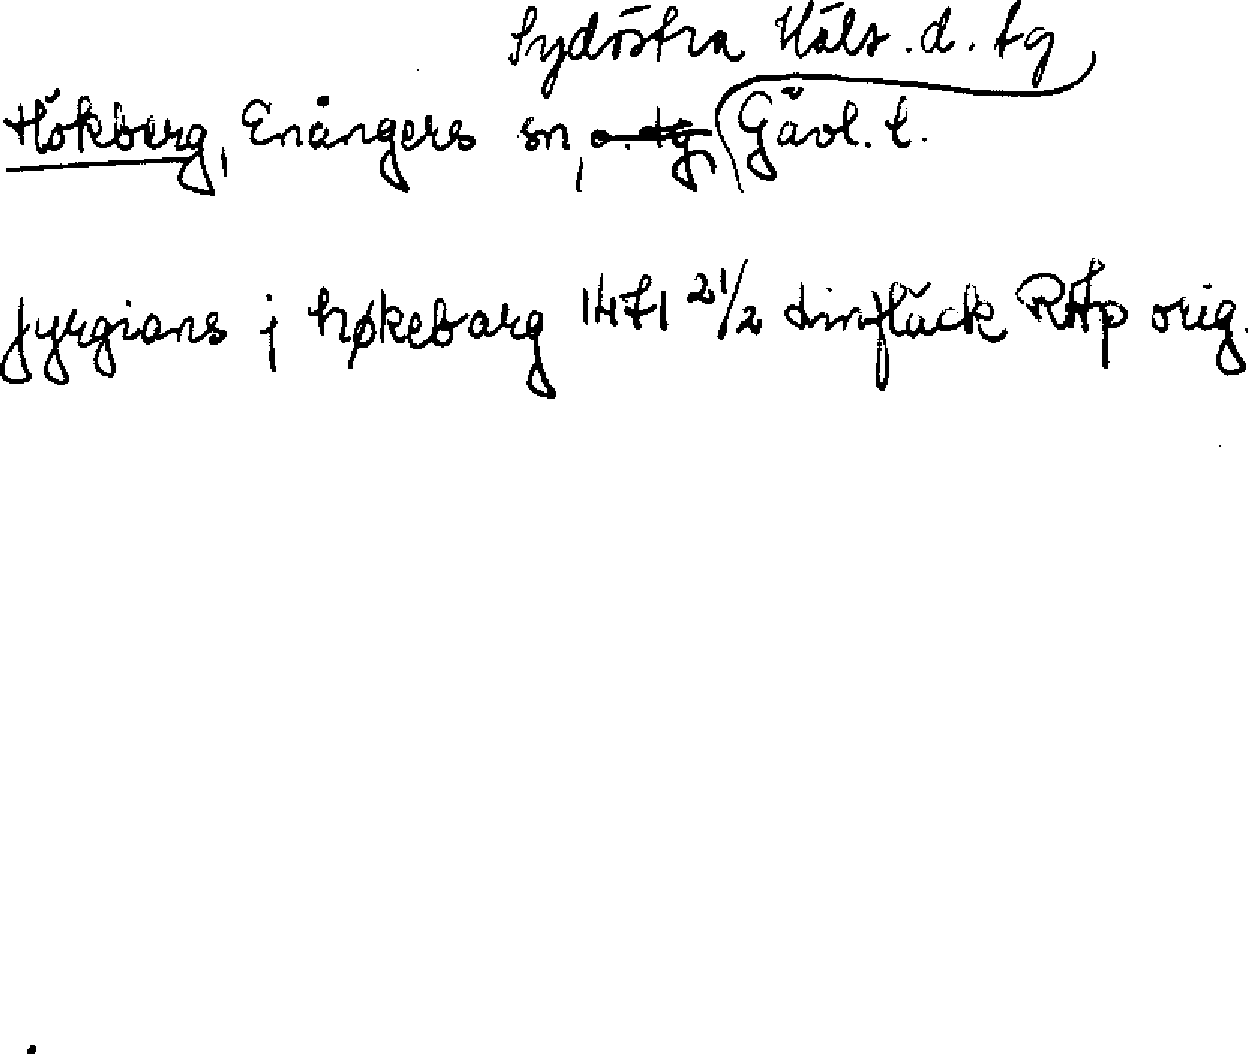 Sydöstra Häls. d. tg
Hökberg, Enångers sn, o. tg, Gävl. l.
jyrgians j høkebærg 1471 2 1/2 Hinfläck RAp orig.